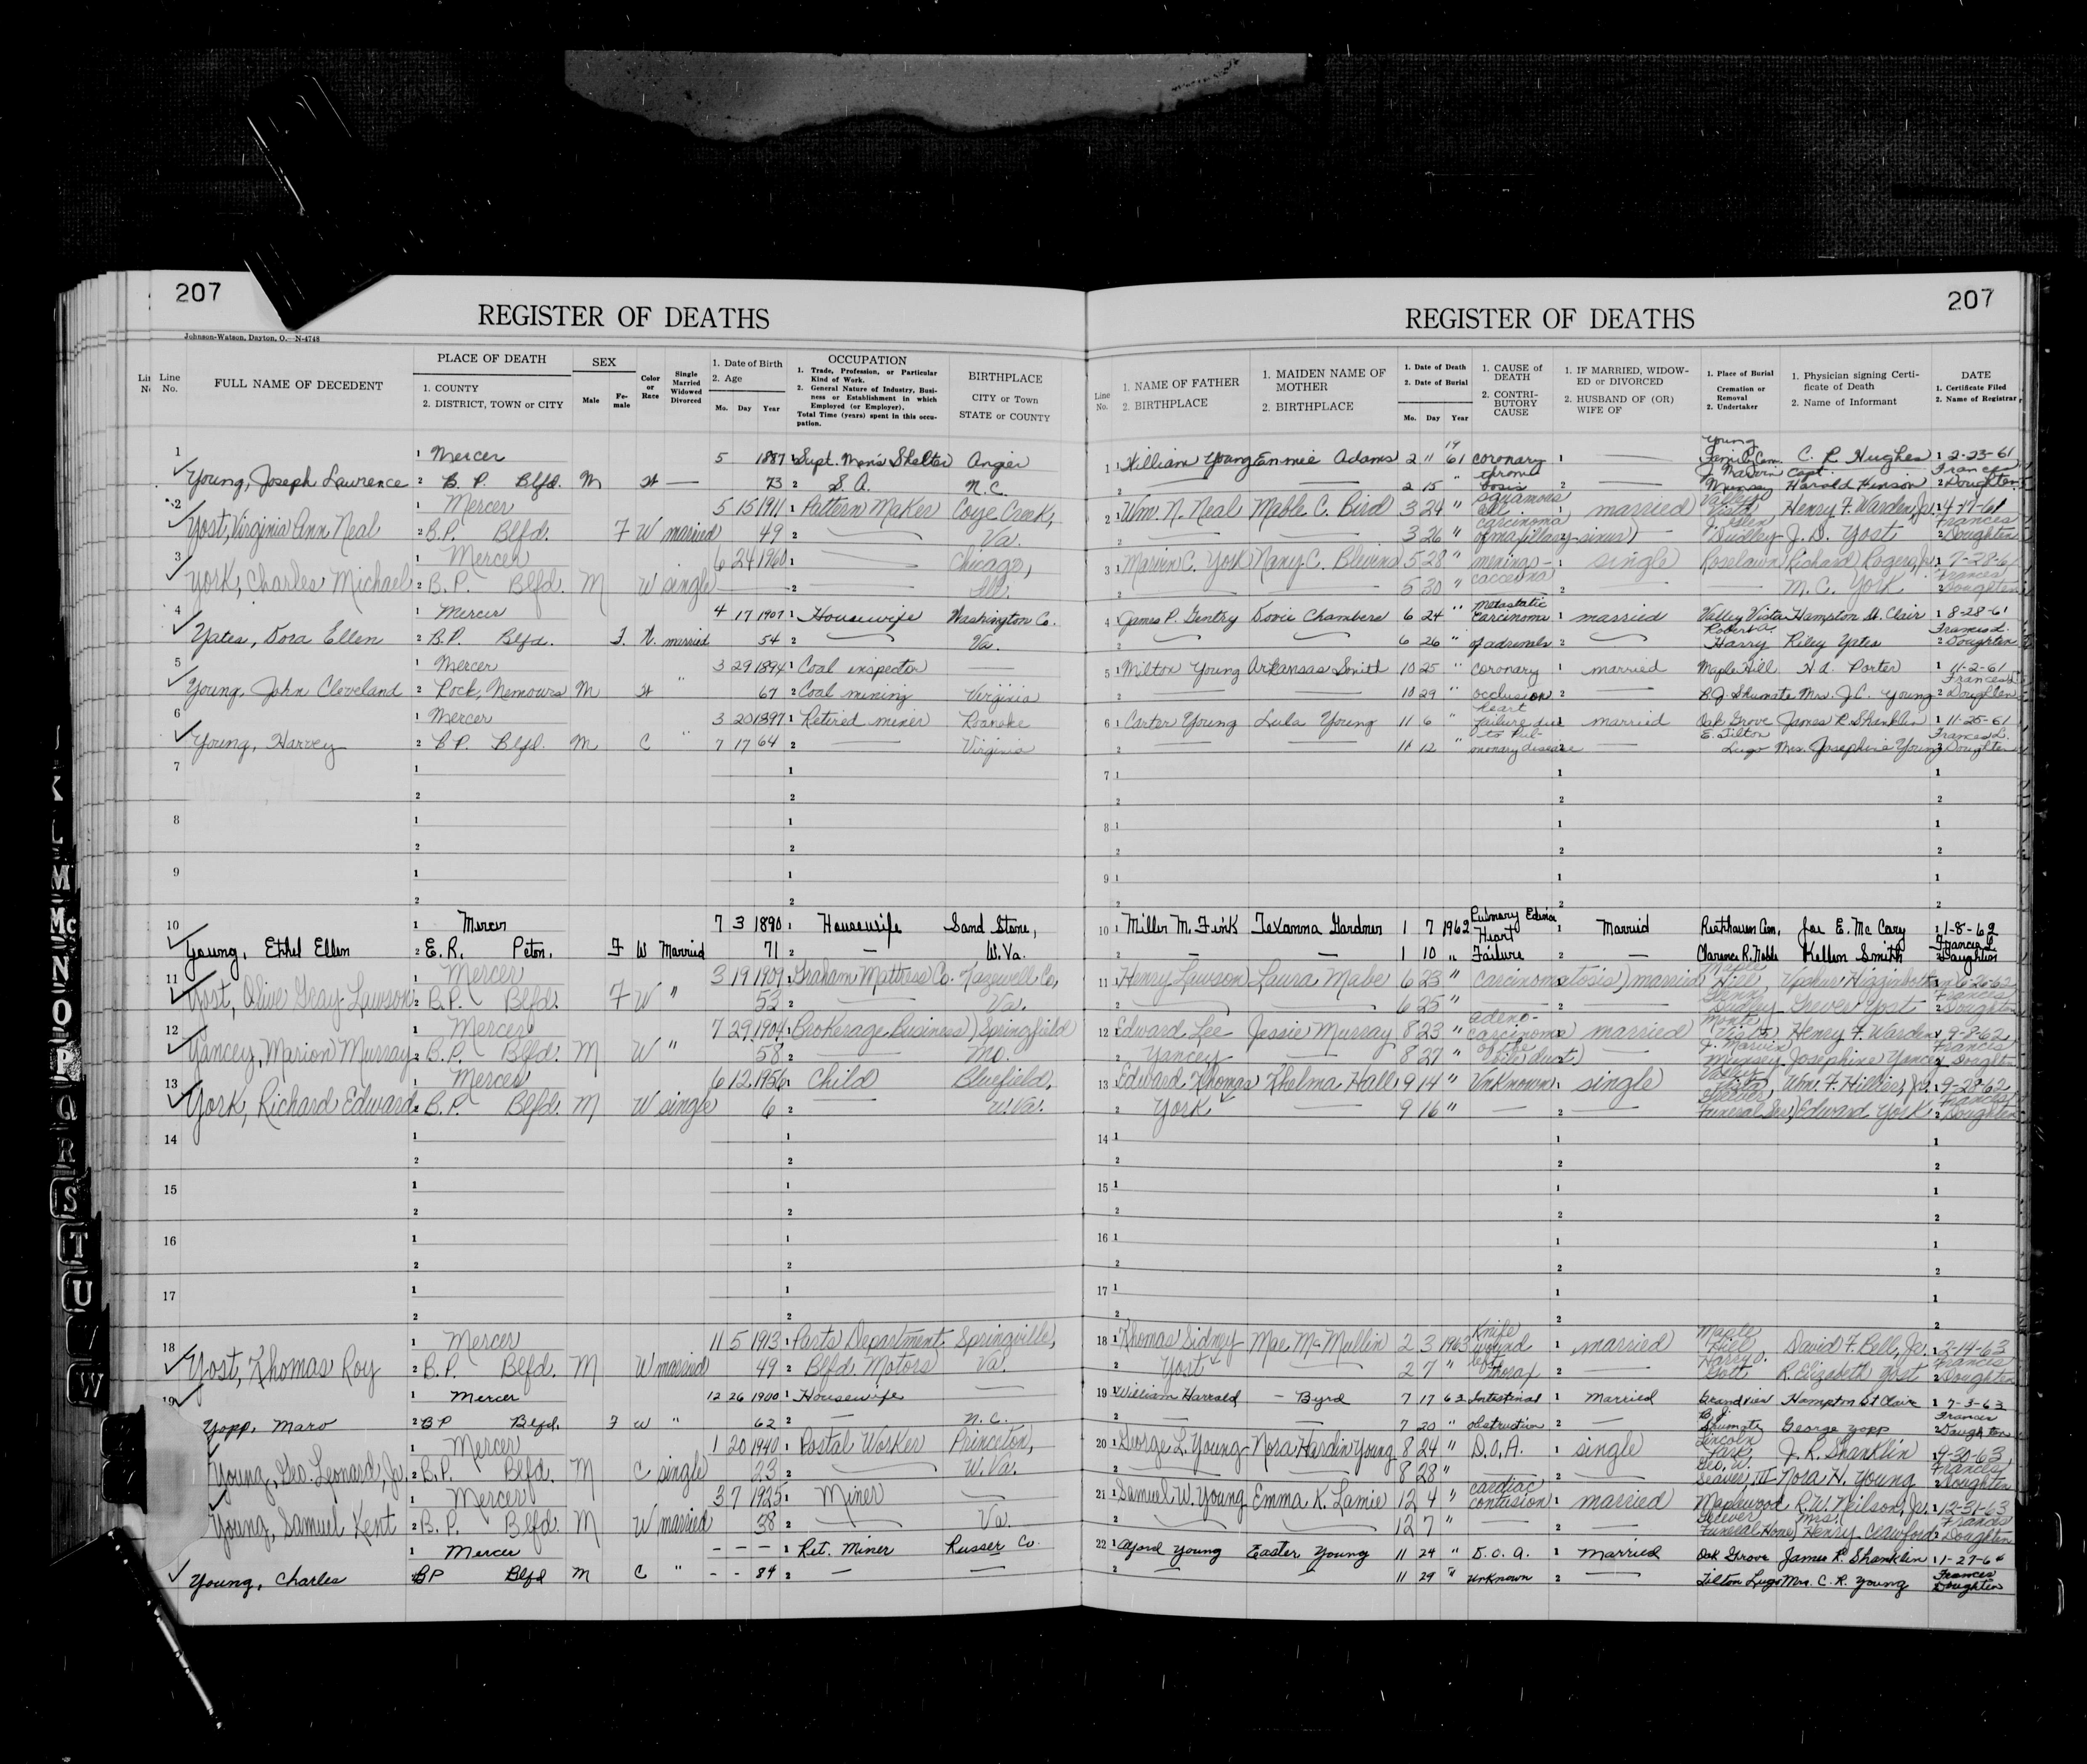 207
REGISTER OF DEATHS
Johnson-Watson, Dayton, O.—N-4748
Line No.
FULL NAME OF DECEDENT
PLACE OF DEATH
1. COUNTY
2. DISTRICT, TOWN or CITY
SEX
Male
Fe-male
Color or Race
Single Married Widowed Divorced
1. Date of Birth
2. Age
Mo. Day Year
OCCUPATION
1. Trade, Profession, or Particular Kind of Work.
2. General Nature of Industry, Busi-ness or Establishment in which Employed (or Employer).
Total Time (years) spent in this occu-pation.
BIRTHPLACE
CITY or Town
STATE or COUNTY
1 Mercer 5 1887 1 Supt. Men's Shelter Angier
Young, Joseph Lawrence 2 B. P. Blfd. M W — 73 2 S. A. N.C.
2 1 Mercer 5 15 1911 1 Pattern Maker Coye Creek,
Yost, Virginia Ann Neal 2 B.P. Blfd. F W married 49 2 — Va.
3 1 Mercer 6 24 1960 1 — Chicago,
York, Charles Michael 2 B.P. Blfd. M W single — 2 — Ill.
4 1 Mercer 4 17 1907 1 Housewife Washington Co.
Yates, Dora Ellen 2 B.P. Blfd. F. W. married 54 2 — Va.
5 1 Mercer 3 29 1894 1 Coal inspector —
Young, John Cleveland 2 Rock, Nemours M W " 67 2 Coal mining Virginia
6 1 Mercer 3 20 1897 1 Retired miner Roanoke
Young, Harvey 2 B.P. Blfd. M C " 7 17 64 2 — Virginia
7 1 1
2 2
8 1 1
2 2
9 1 1
2 2
10 1 Mercer 7 3 1890 1 Housewife Sand Stone,
Young, Ethel Ellen 2 E.R. Peton. F W Married 71 2 — W.Va.
11 1 Mercer 3 19 1909 1 Graham Mattress Co. Tazewell Co,
Yost, Olive Gray Lawson 2 B.P. Blfd. F W " 53 2 — Va.
12 1 Mercer 7 29 1904 1 Brokerage Business Springfield
Yancey, Marion Murray 2 B.P. Blfd. M W " 58 2 — Mo.
13 1 Mercer 6 12 1956 1 Child Bluefield,
York, Richard Edward 2 B.P. Blfd. M W single 6 2 — W.Va.
14 1 1
2 2
15 1 1
2 2
16 1 1
2 2
17 1 1
2 2
18 1 Mercer 11 5 1913 1 Parts Department Springville,
Yost, Thomas Roy 2 B.P. Blfd. M W married 49 2 Blfd. Motors Va.
19 1 Mercer 12 26 1900 1 Housewife —
Yopp, Maro 2 BP Blfd. F W " 62 2 — N.C.
1 Mercer 1 20 1940 1 Postal Worker Princeton,
Young, Geo. Leonard, Jr. 2 B.P. Blfd. M C single 23 2 — W.Va.
1 Mercer 3 7 1925 1 Miner —
Young, Samuel Kent 2 B.P. Blfd. M W married 38 2 — Va.
1 Mercer - - - 1 Ret. Miner Russer Co.
Young, Charles BP Blfd M C " - - 84 2 — —
207
REGISTER OF DEATHS
Line No.
1. NAME OF FATHER
2. BIRTHPLACE
1. MAIDEN NAME OF MOTHER
2. BIRTHPLACE
1. Date of Death
2. Date of Burial
Mo. Day Year
1. CAUSE OF DEATH
2. CONTRI-BUTORY CAUSE
1. IF MARRIED, WIDOW-ED or DIVORCED
2. HUSBAND OF (OR) WIFE OF
1. Place of Burial Cremation or Removal
2. Undertaker
1. Physician signing Certi-ficate of Death
2. Name of Informant
DATE
1. Certificate Filed
2. Name of Registrar
1 1 William Young Enmie Adams 2 11 1961 coronary 1 — Young Family Cem. C. R. Hughes 1 2-23-61
2 — — 2 15 " thrombosis 2 — J. Marvin Munsey Capt. Harold Hinson 2 Frances Doughten
2 1 Wm. N. Neal Mable C. Bird 3 24 " squamous cell 1 married Valley Vista Henry F. Warden, Jr. 1 4-27-61
2 — — 3 26 " carcinoma of maxillary sinus — J. Glen Dudley J. D. Yost Frances Doughten
3 1 Marvin C. York Nancy C. Blevins 5 28 " menings- 1 single Roselawn Richard Rogers, Jr. 1 7-28-61
2 — — 5 30 " coccemia 2 — — M. C. York Frances 2 Doughten
4 1 James P. Gentry Dovie Chambers 6 24 " metastatic carcinoma 1 married Valley Vista Hampton St. Clair 1 8-28-61
2 — — 6 26 " of adrenals 2 — Robert A. Harry Riley Yates Frances L. 2 Doughten
5 1 Milton Young Arkansas Smith 10 25 " coronary 1 married Maple Hill H.A. Porter 1 11-2-61
2 — — 10 29 " occlusion 2 — B.J. Shumate Mrs. J.C. Young Frances L. 2 Doughten
6 1 Carter Young Lula Young 11 6 " heart failure due 1 married Oak Grove James R. Shanklin 1 11-25-61
2 — — 11 12 " to Pul-monary disease — E. Tilton Lugo Mrs. Josephine Young Frances L. 2 Doughten
7 1 1 1
2 2 2
8 1 1 1
2 2 2
9 1 1 1
2 2 2
10 1 Miller M. Fink TeXanna Gardner 1 7 1962 Pulmary Edema 1 Married Resthaven Cem. Joe E. Mc Cary 1 1-8-62
2 — — 1 10 " Heart Failure 2 — Clarence R. Noble Kellon Smith Frances L. 2 Doughten
11 1 Henry Lawson Laura Mabe 6 23 " carcinomatosis married Maple Hill, Upshur Higginbotham 6-26-62
2 — — 6 25 " — 2 — Dudley Grever Yost Frances 2 Doughten
12 1 Edward Lee Jessie Murray 8 23 " adeno-carcinoma married Monte Vista Henry F. Warden 1 9-8-62
2 Yancey — 8 27 " of the bile duct — J. Marvin Munsey Josephine Yancey Frances Doughten
13 1 Edward Thomas Thelma Hall 9 14 " Unknown 1 single Valley Vista Wm. F. Hillier, Jr. 1 9-28-62
2 York — 9 16 " — 2 — Seaver Funeral Ser. Edward York Frances 2 Doughten
14 1 1 1
2 2 2
15 1 1 1
2 2 2
16 1 1 1
2 2 2
17 1 1 1
2 2 2
18 1 Thomas Sidney Mae McMullin 2 3 1963 Knife wound 1 married Maple Hill, David F. Bell, Jr. 1 2-14-63
2 Yost — 2 7 " left thorax 2 — Harry D. Gott R. Elizabeth Yost Frances 2 Doughten
19 1 William Harrald — Byrd 7 17 63 Intestinal 1 Married Grandview Hampton St Clair 1 7-3-63
2 — — 7 20 " obstruction 2 — B.J. Shumate George Yopp Frances 2 Doughten
20 1 George L. Young Nora Hardin Young 8 24 " D.O.A. 1 single Lincoln Park, J. R. Shanklin 1 9-30-63
2 — — 8 28 " 2 — Geo. W. Seaver III Nora H. Young Frances 2 Doughten
21 1 Samuel W. Young Emma K. Lamie 12 4 " cardiac contusion 1 married Maplewood R.W. Neilson, Jr. 1 12-31-63
2 — — 12 7 " — 2 — Seaver Funeral Home Mrs. Henry Crawford Frances 2 Doughten
22 1 Ayord Young Easter Young 11 24 " D.O.A. 1 Married Oak Grove James R. Shanklin 1 1-27-64
2 — — 11 29 " Unknown 2 — Tilton Lugo Mrs. C. R. Young Frances Doughten
K
L
M
Mc
N
O
P
Q
R
S
T
U
V
W